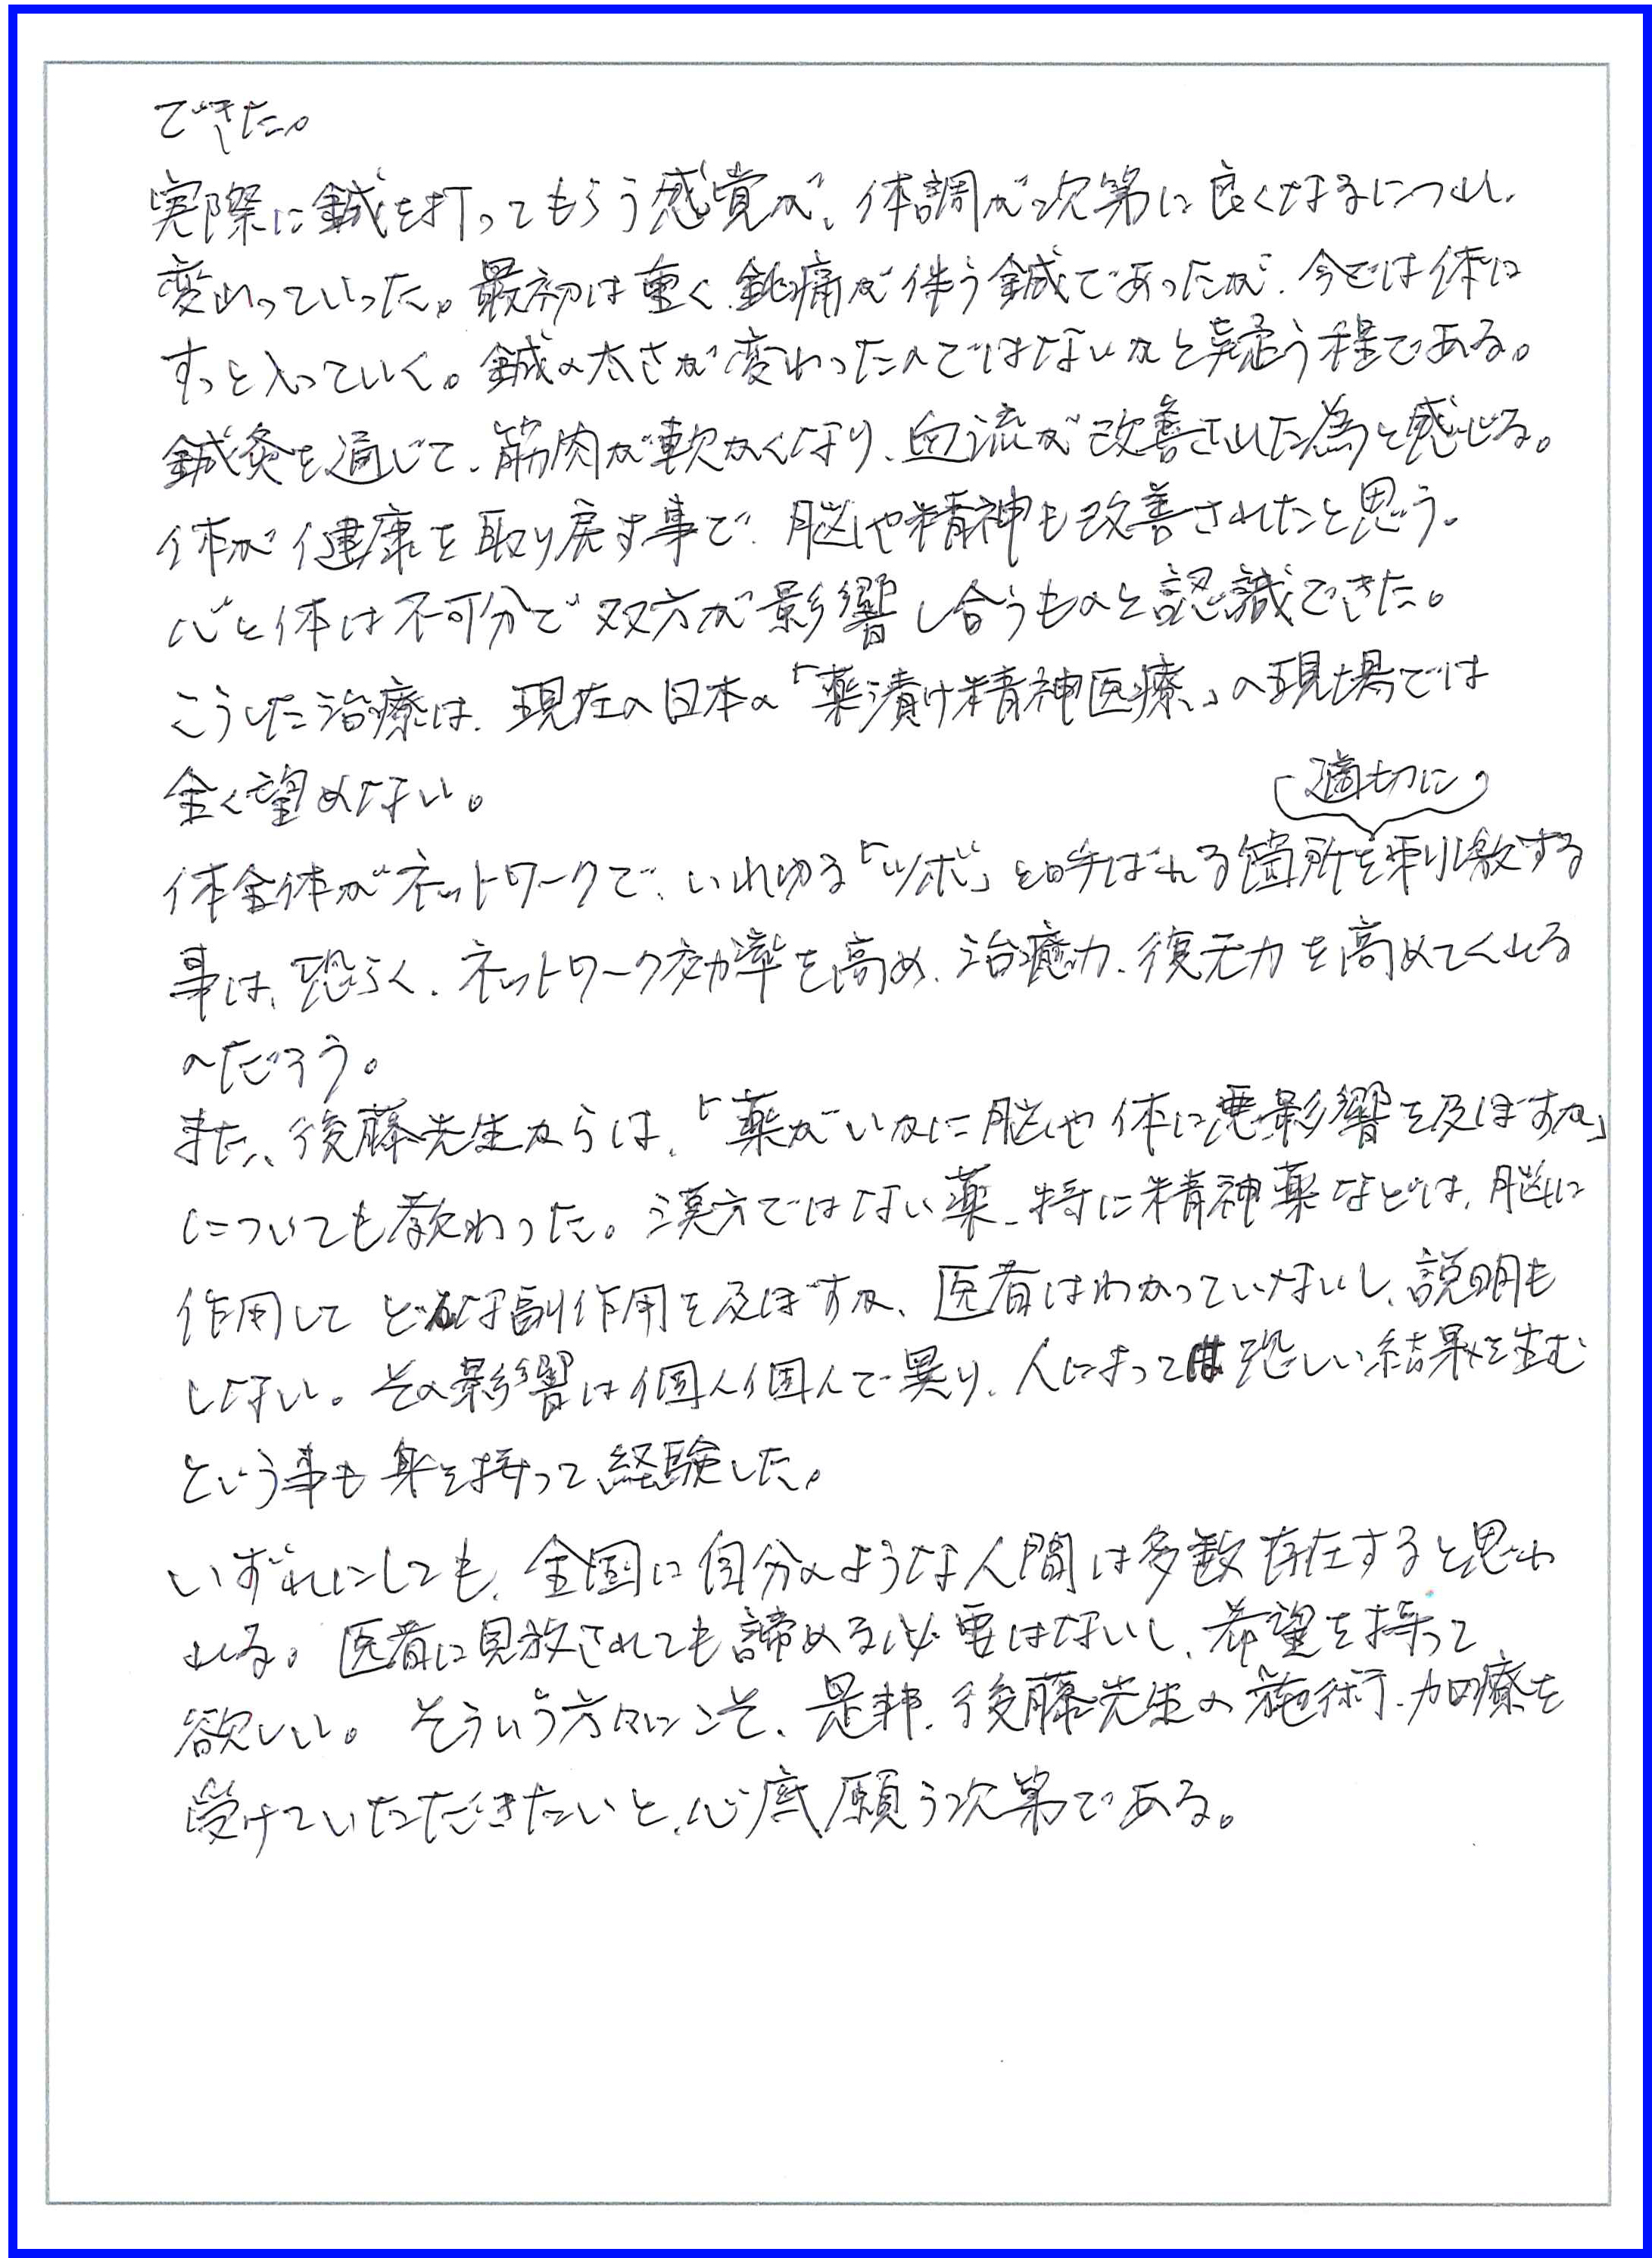 できた。
実際に鍼を打ってもらう感覚が、体調が次第に良くなるにつれ、
変わっていった。最初は重く、鈍痛が伴う鍼であったが、今では体に
すっと入っていく。鍼の太さが変わったのではないかと疑う程である。
鍼灸を通じて、筋肉が軟かくなり、血流が改善された為と感じる。
体が健康を取り戻す事で、脳や精神も改善されたと思う。
心と体は不可分で双方が影響し合うものと認識できた。
こうした治療は、現在の日本の「薬漬け精神医療」の現場では
全く望めない。
適切に
体全体がネットワークで、いわゆる「ツボ」と呼ばれる箇所を刺激する
事は、恐らく、ネットワーク効率を高め、治癒力、復元力を高めてくれる
のだろう。
また、後藤先生からは、「薬がいかに脳や体に悪影響を及ぼすか」
についても教わった。漢方ではない薬、特に精神薬などは、脳に
作用してどんな副作用を及ぼすか、医者はわかっていないし、説明も
しない。その影響は個人個人で異り、人によっては恐しい結果を生む
という事も身を持って経験した。
いずれにしても、全国に自分のような人間は多数存在すると思わ
れる。医者に見放されても諦める必要はないし、希望を持って
欲しい。そういう方々にこそ、是非、後藤先生の施術、加療を
受けていただきたいと、心底願う次第である。